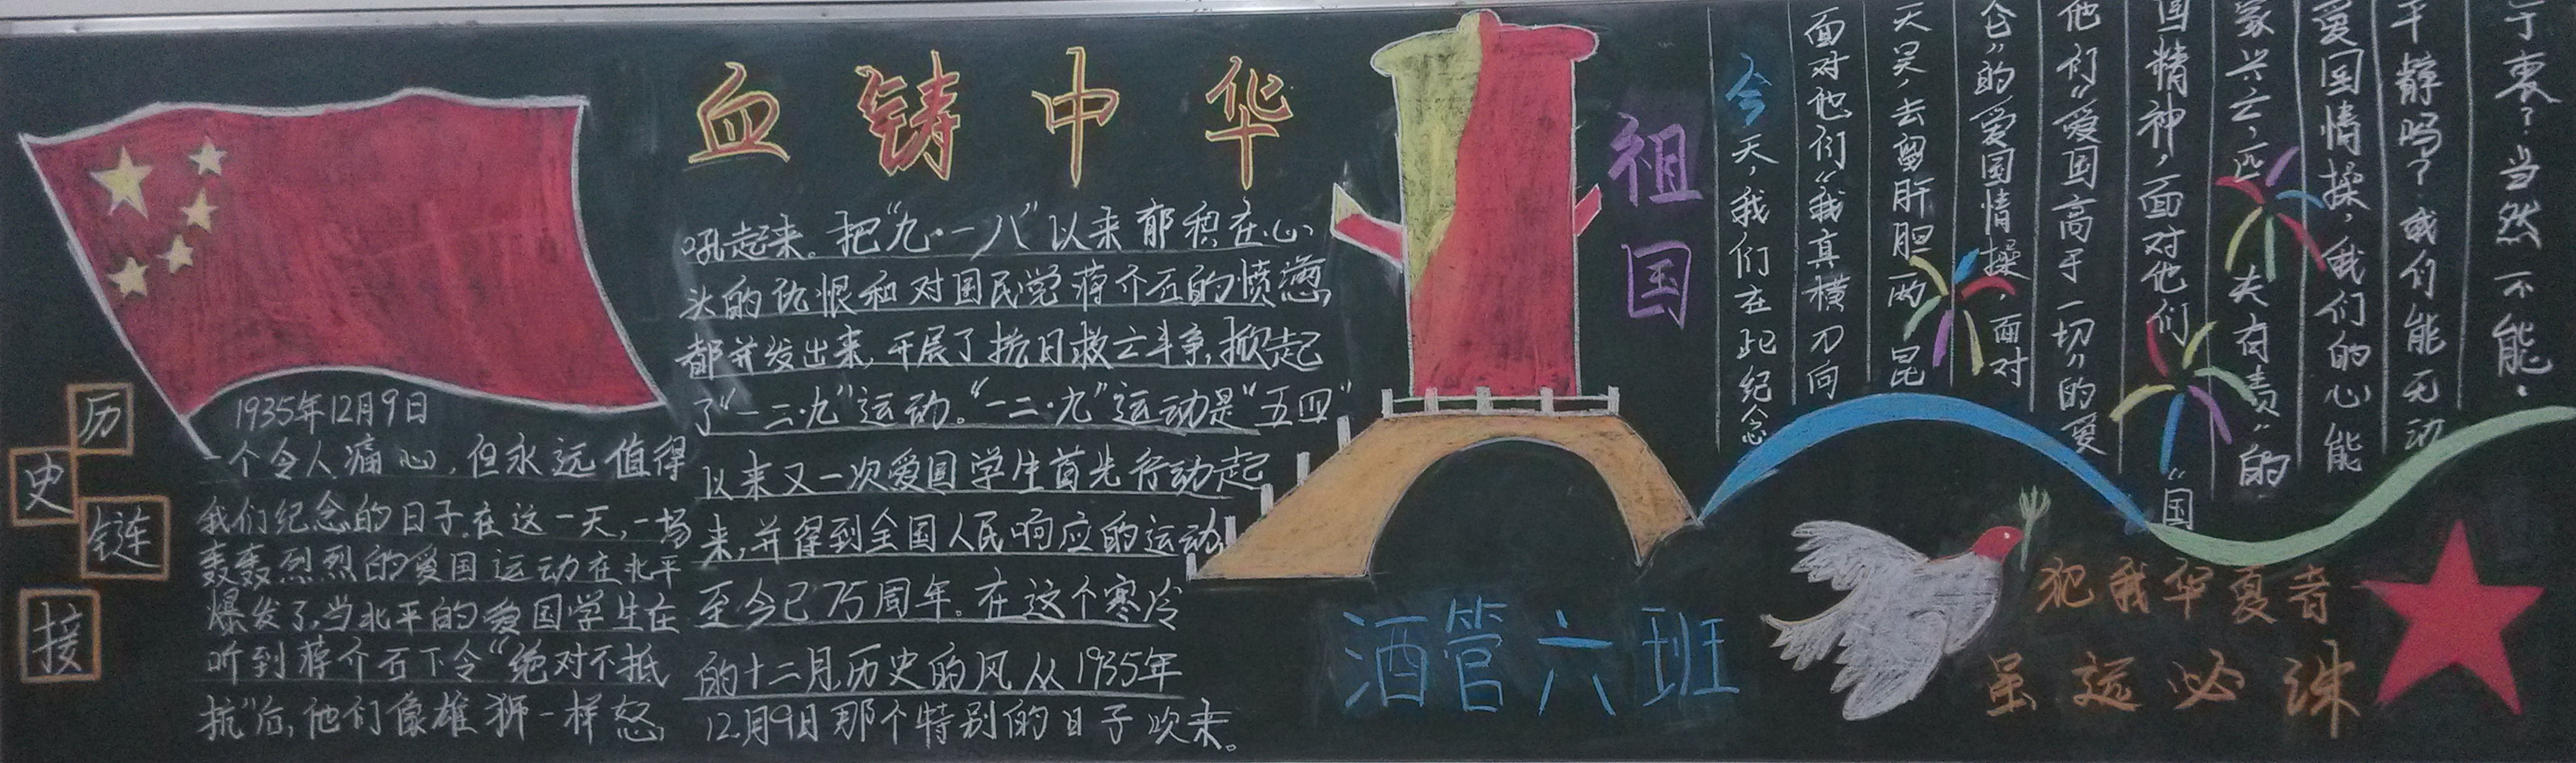 血铸中华
历
史
链
接
1935年12月9日
一个令人痛心,但永远值得
我们纪念的日子.在这一天,一场
轰轰烈烈的爱国运动在北平
爆发了,当北平的爱国学生在
听到蒋介石下令“绝对不抵
抗”后,他们像雄狮一样怒
吼起来。把“九·一八”以来郁积在心
头的仇恨和对国民党蒋介石的愤懑,
都并发出来,开展了抗日救亡斗争,掀起
了“一二·九”运动。“一二·九”运动是“五四”
以来又一次爱国学生首先行动起
来,并得到全国人民响应的运动,
至今已75周年。在这个寒冷
的十二月,历史的风从1935年
12月9日那个特别的日子吹来。
祖国
今天,我们在此纪念
面对他们“我真横刀向
天笑,去留肝胆两昆
仑”的爱国情操,面对
他们“爱国高于一切”的爱
国精神,面对他们“国
家兴亡,匹夫有责”的
爱国情操,我们的心能
平静吗?我们能无动
于衷?当然不能.
酒管六班
犯我华夏者
虽远必诛